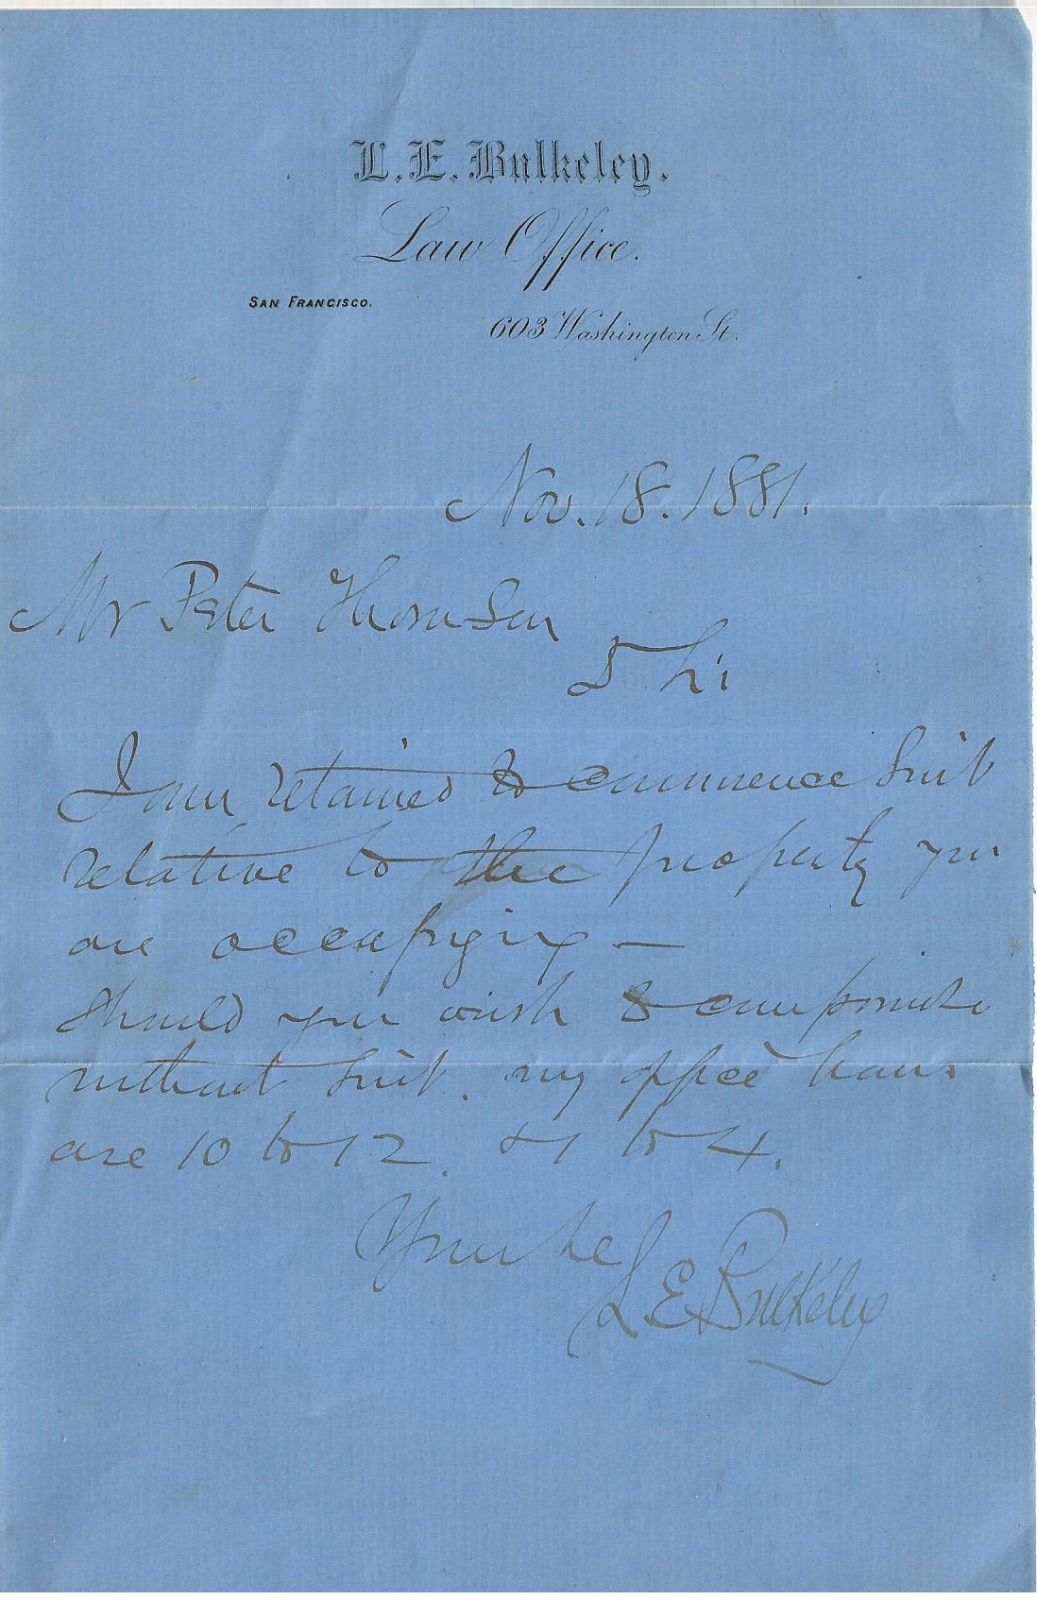 L. E. Bulkeley.
Law Office.
SAN FRANCISCO.
603 Washington St.
Nov. 18. 1881.
Mr Peter Thomsen
I am retained to commence suit
relative to the property you
are occupying —
Should you wish to compromise
without suit. my office hours
are 10 to 12. & 1 to 4.
Yours &c
L E Bulkeley